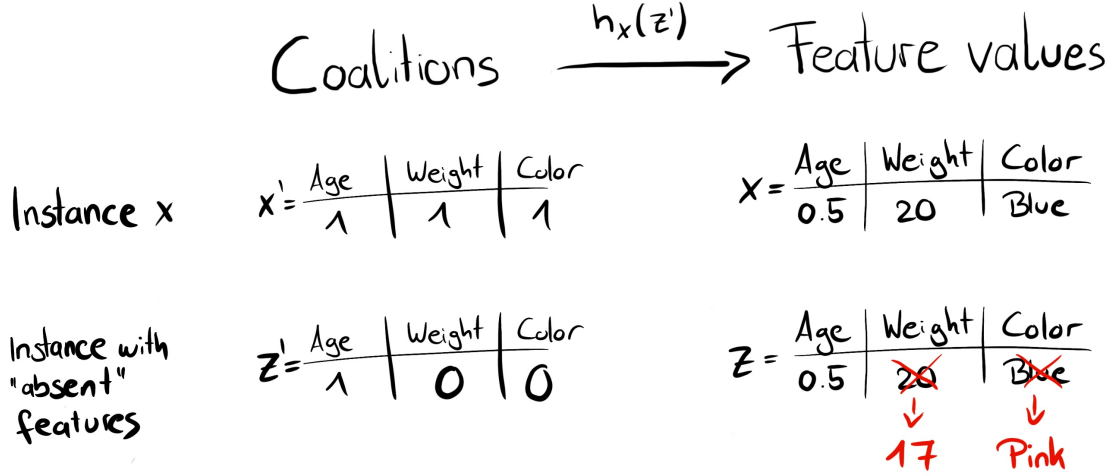 Coalitions h_x(z') Feature values
Instance x
x' = Age Weight Color
1 1 1
x = Age Weight Color
0.5 20 Blue
Instance with
"absent"
features
z' = Age Weight Color
1 0 0
z = Age Weight Color
0.5 20 Blue
17 Pink